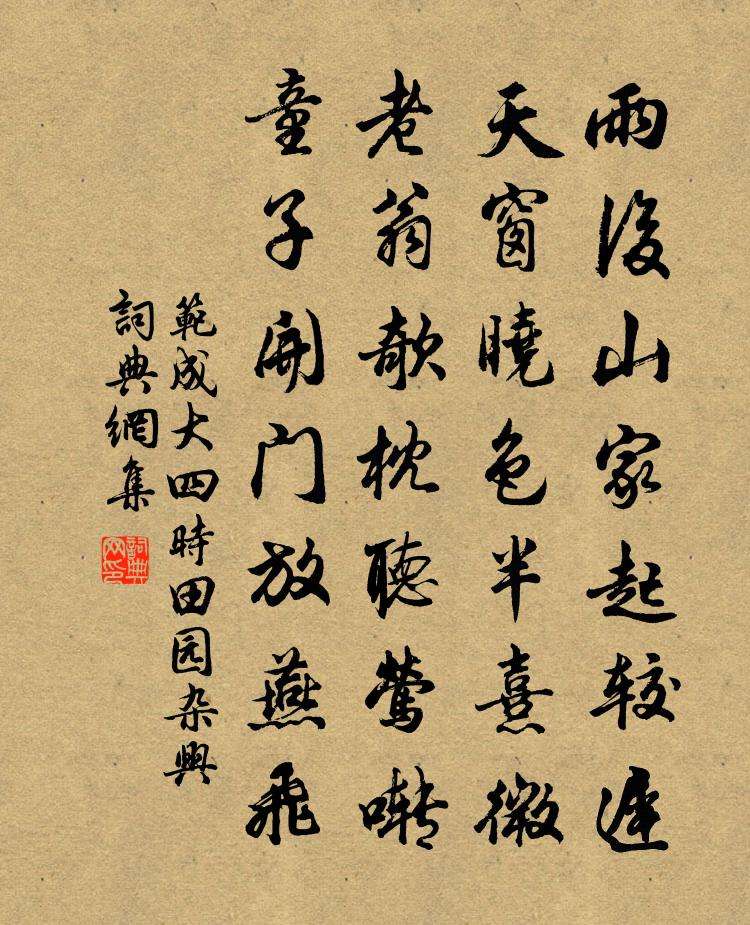 雨後山家起较遲
天窗曉色半熹微
老翁欹枕聽鶯囀
童子開门放燕飛
範成大四時田园杂興
詞典網集
詞典网印